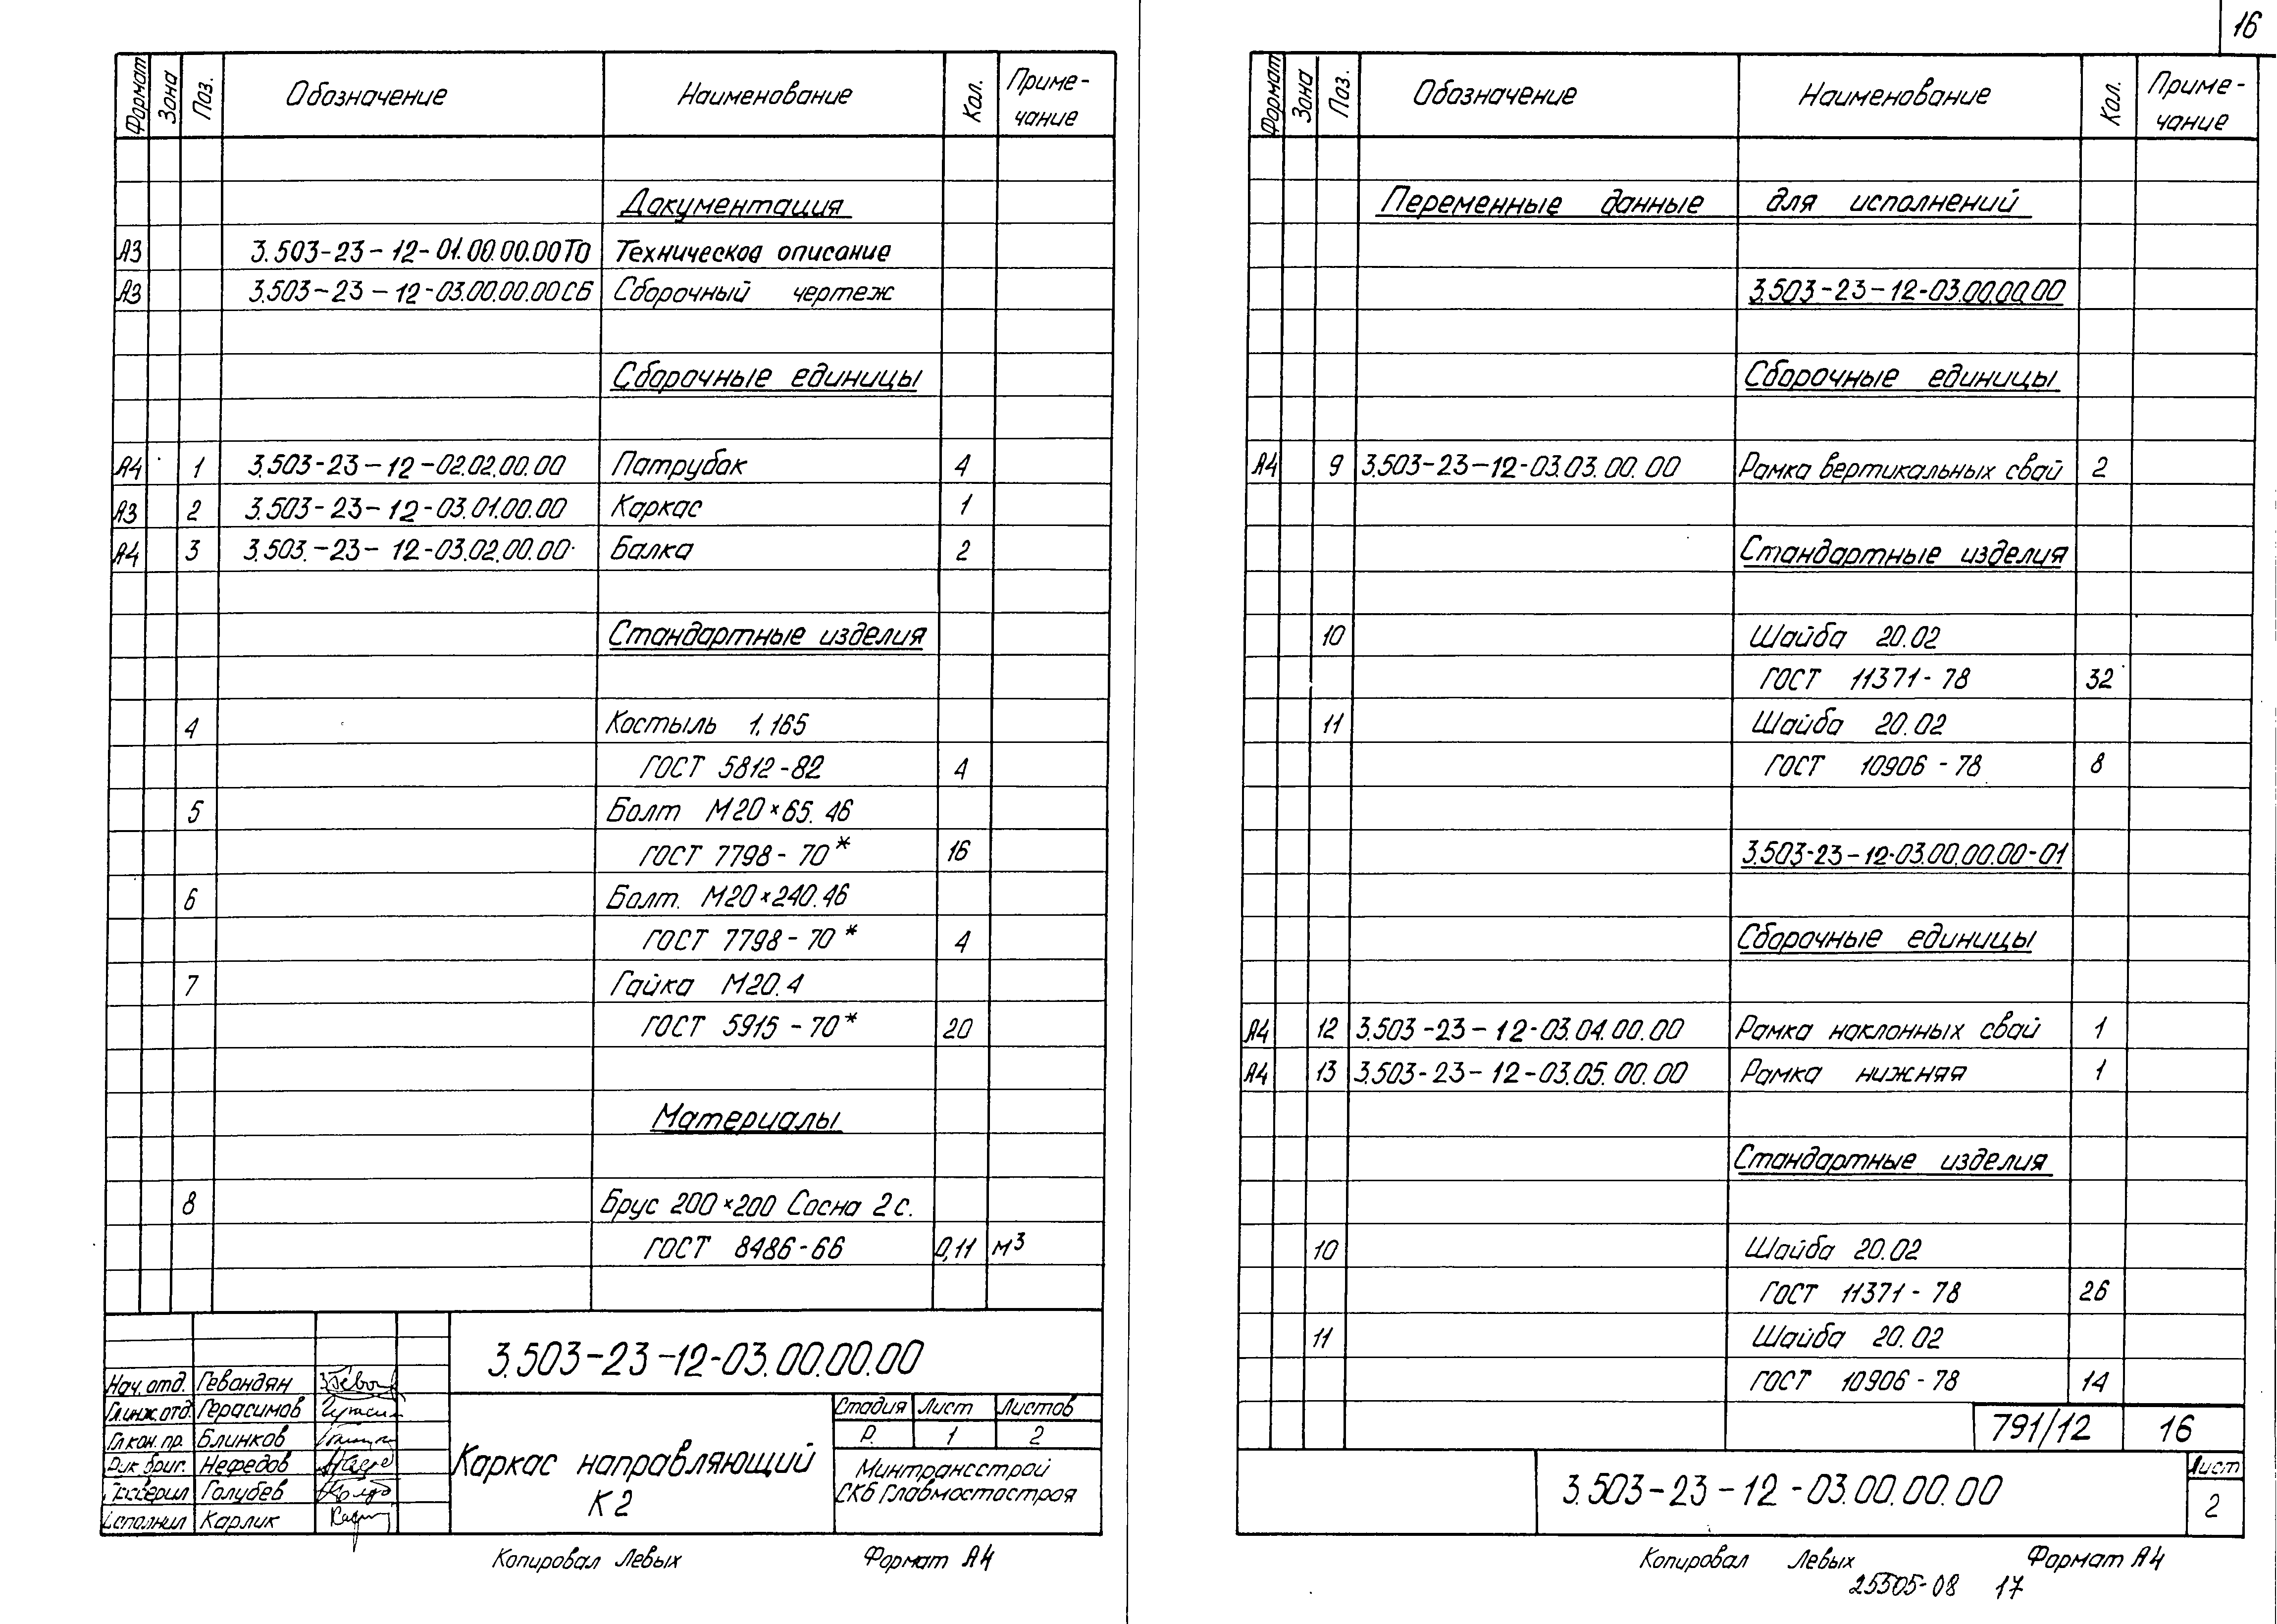 16
Формат Зона Поз. Обозначение Наименование Кол. Приме-
чание
Документация
А3 3.503-23-12-01.00.00.00ТО Техническое описание
А3 3.503-23-12-03.00.00.00СБ Сборочный чертеж
Сборочные единицы
А4 1 3.503-23-12-02.02.00.00 Патрубок 4
А3 2 3.503-23-12-03.01.00.00 Каркас 1
А4 3 3.503.-23-12-03.02.00.00 Балка 2
Стандартные изделия
4 Костыль 1.165
ГОСТ 5812-82 4
5 Болт М20×65.46
ГОСТ 7798-70* 16
6 Болт. М20×240.46
ГОСТ 7798-70* 4
7 Гайка М20.4
ГОСТ 5915-70* 20
Материалы
8 Брус 200×200 Сосна 2с.
ГОСТ 8486-66 0,11 м³
3.503-23-12-03.00.00.00
Нач. отд. Гевондян
Гл.инж.отд. Герасимов
Гл.кон.пр. Блинков
Рук.бриг. Нефедов
Проверил Голубев
Исполнил Карлик
Каркас направляющий
К2
Стадия Лист Листов
Р. 1 2
Минтрансстрой
СКБ Главмостостроя
Копировал Левых Формат А4
Формат Зона Поз. Обозначение Наименование Кол. Приме-
чание
Переменные данные для исполнений
3.503-23-12-03.00.00.00
Сборочные единицы
А4 9 3.503-23-12-03.03.00.00 Рамка вертикальных свай 2
Стандартные изделия
10 Шайба 20.02
ГОСТ 11371-78 32
11 Шайба 20.02
ГОСТ 10906-78 8
3.503-23-12-03.00.00.00-01
Сборочные единицы
А4 12 3.503-23-12-03.04.00.00 Рамка наклонных свай 1
А4 13 3.503-23-12-03.05.00.00 Рамка нижняя 1
Стандартные изделия
10 Шайба 20.02
ГОСТ 11371-78 26
11 Шайба 20.02
ГОСТ 10906-78 14
791/12 16
3.503-23-12-03.00.00.00
Лист
2
Копировал Левых Формат А4
25505-08 17